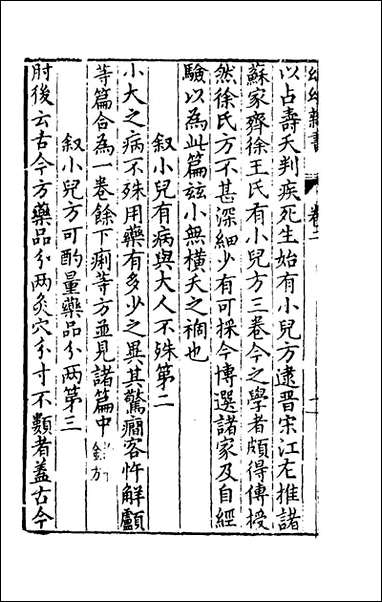 幼幼新書 卷二
以占壽夭判疾死生始有小兒方逮晉宋江左推諸
蘇家齊徐王氏有小兒方三卷今之學者頗得傳授
然徐氏方不甚深細少有可採今博選諸家及自經
驗以為此篇玆小無橫夭之禍也
叙小兒有病與大人不殊第二
小大之病不殊用藥有多少之異其驚癎客忤解顱
等篇合為一卷餘下痢等方並見諸篇中
叙小兒方可酌量藥品分兩第三
肘後云古今方藥品分兩灸穴分寸不類者蓋古今